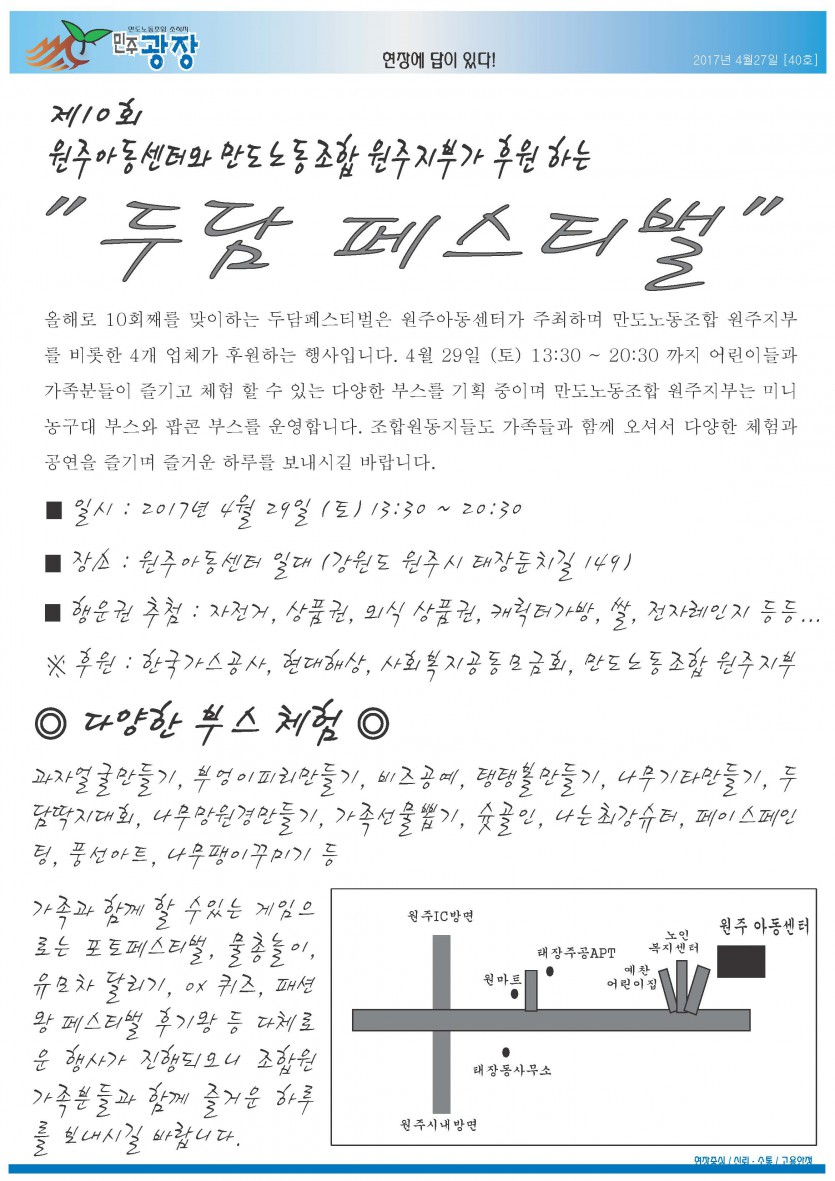 만도노동포럼 소식지
민주광장
현장에 답이 있다!
2017년 4월27일 [40호]
제10회
원주아동센터와 만도노동조합 원주지부가 후원 하는
"두담 페스티벌"
올해로 10회째를 맞이하는 두담페스티벌은 원주아동센터가 주최하며 만도노동조합 원주지부
를 비롯한 4개 업체가 후원하는 행사입니다. 4월 29일 (토) 13:30 ~ 20:30 까지 어린이들과
가족분들이 즐기고 체험 할 수 있는 다양한 부스를 기획 중이며 만도노동조합 원주지부는 미니
농구대 부스와 팝콘 부스를 운영합니다. 조합원동지들도 가족들과 함께 오셔서 다양한 체험과
공연을 즐기며 즐거운 하루를 보내시길 바랍니다.
■ 일시 : 2017년 4월 29일 (토) 13:30 ~ 20:30
■ 장소 : 원주아동센터 일대 (강원도 원주시 태장둔치길 149)
■ 행운권 추첨 : 자전거, 상품권, 외식 상품권, 캐릭터가방, 쌀, 전자레인지 등등...
※ 후원 : 한국가스공사, 현대해상, 사회복지공동모금회, 만도노동조합 원주지부
◎ 다양한 부스 체험 ◎
과자얼굴만들기, 부엉이피리만들기, 비즈공예, 탱탱볼만들기, 나무기타만들기, 두
담딱지대회, 나무망원경만들기, 가족선물뽑기, 슛골인, 나는최강슈터, 페이스페인
팅, 풍선아트, 나무팽이꾸미기 등
가족과 함께 할 수있는 게임으
로는 포토페스티벌, 물총놀이,
유모차 달리기, ox 퀴즈, 패션
왕 페스티벌 후기왕 등 다체로
운 행사가 진행되오니 조합원
가족분들과 함께 즐거운 하루
를 보내시길 바랍니다.
원주IC방면
원주 아동센터
노인
복지센터
태장주공APT
예찬
어린이집
원마트
태장동사무소
원주시내방면
현장중심 / 신뢰·소통 / 고용안정